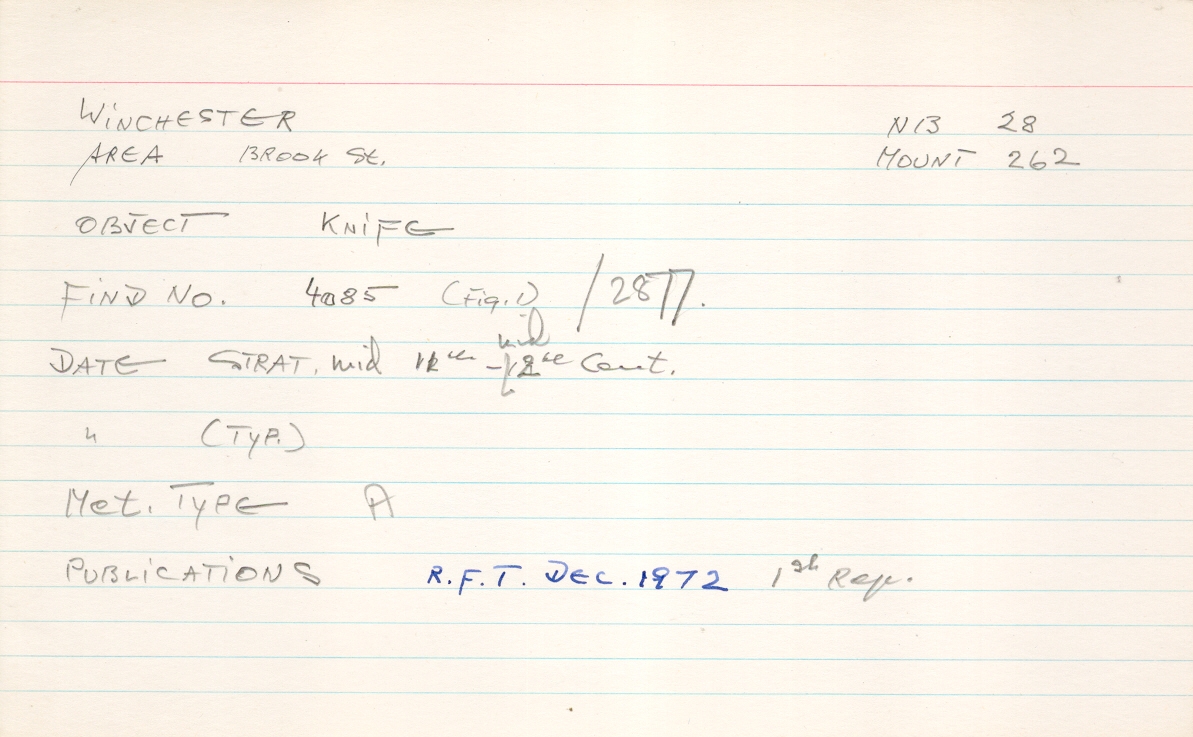 WINCHESTER
AREA BROOK St.
NB 28
MOUNT 262
OBJECT KNIFE
FIND No. 4085 (Fig. 1) / 2877.
DATE STRAT. mid - mid Cent.
" (TYP.)
Met. TYPE A
PUBLICATIONS R.F.T. DEC. 1972 1st Rep.